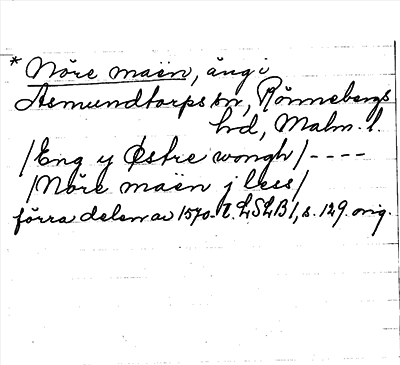 * Nöre maën, äng i
Asmundtorps sn, Rönnebergs
hd, Malm. l.
/Eng y Østre wongh/ ----
/Nöre maën j less/
förra delen av 1570-t. LSLB1, s. 129. orig.